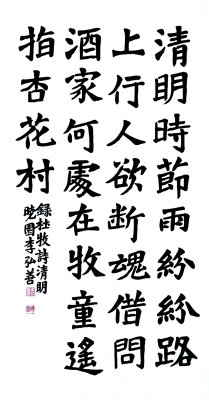 清明時節雨紛紛路
上行人欲断魂借問
酒家何處在牧童遙
指杏花村
錄杜牧詩清明
曉園李弘善